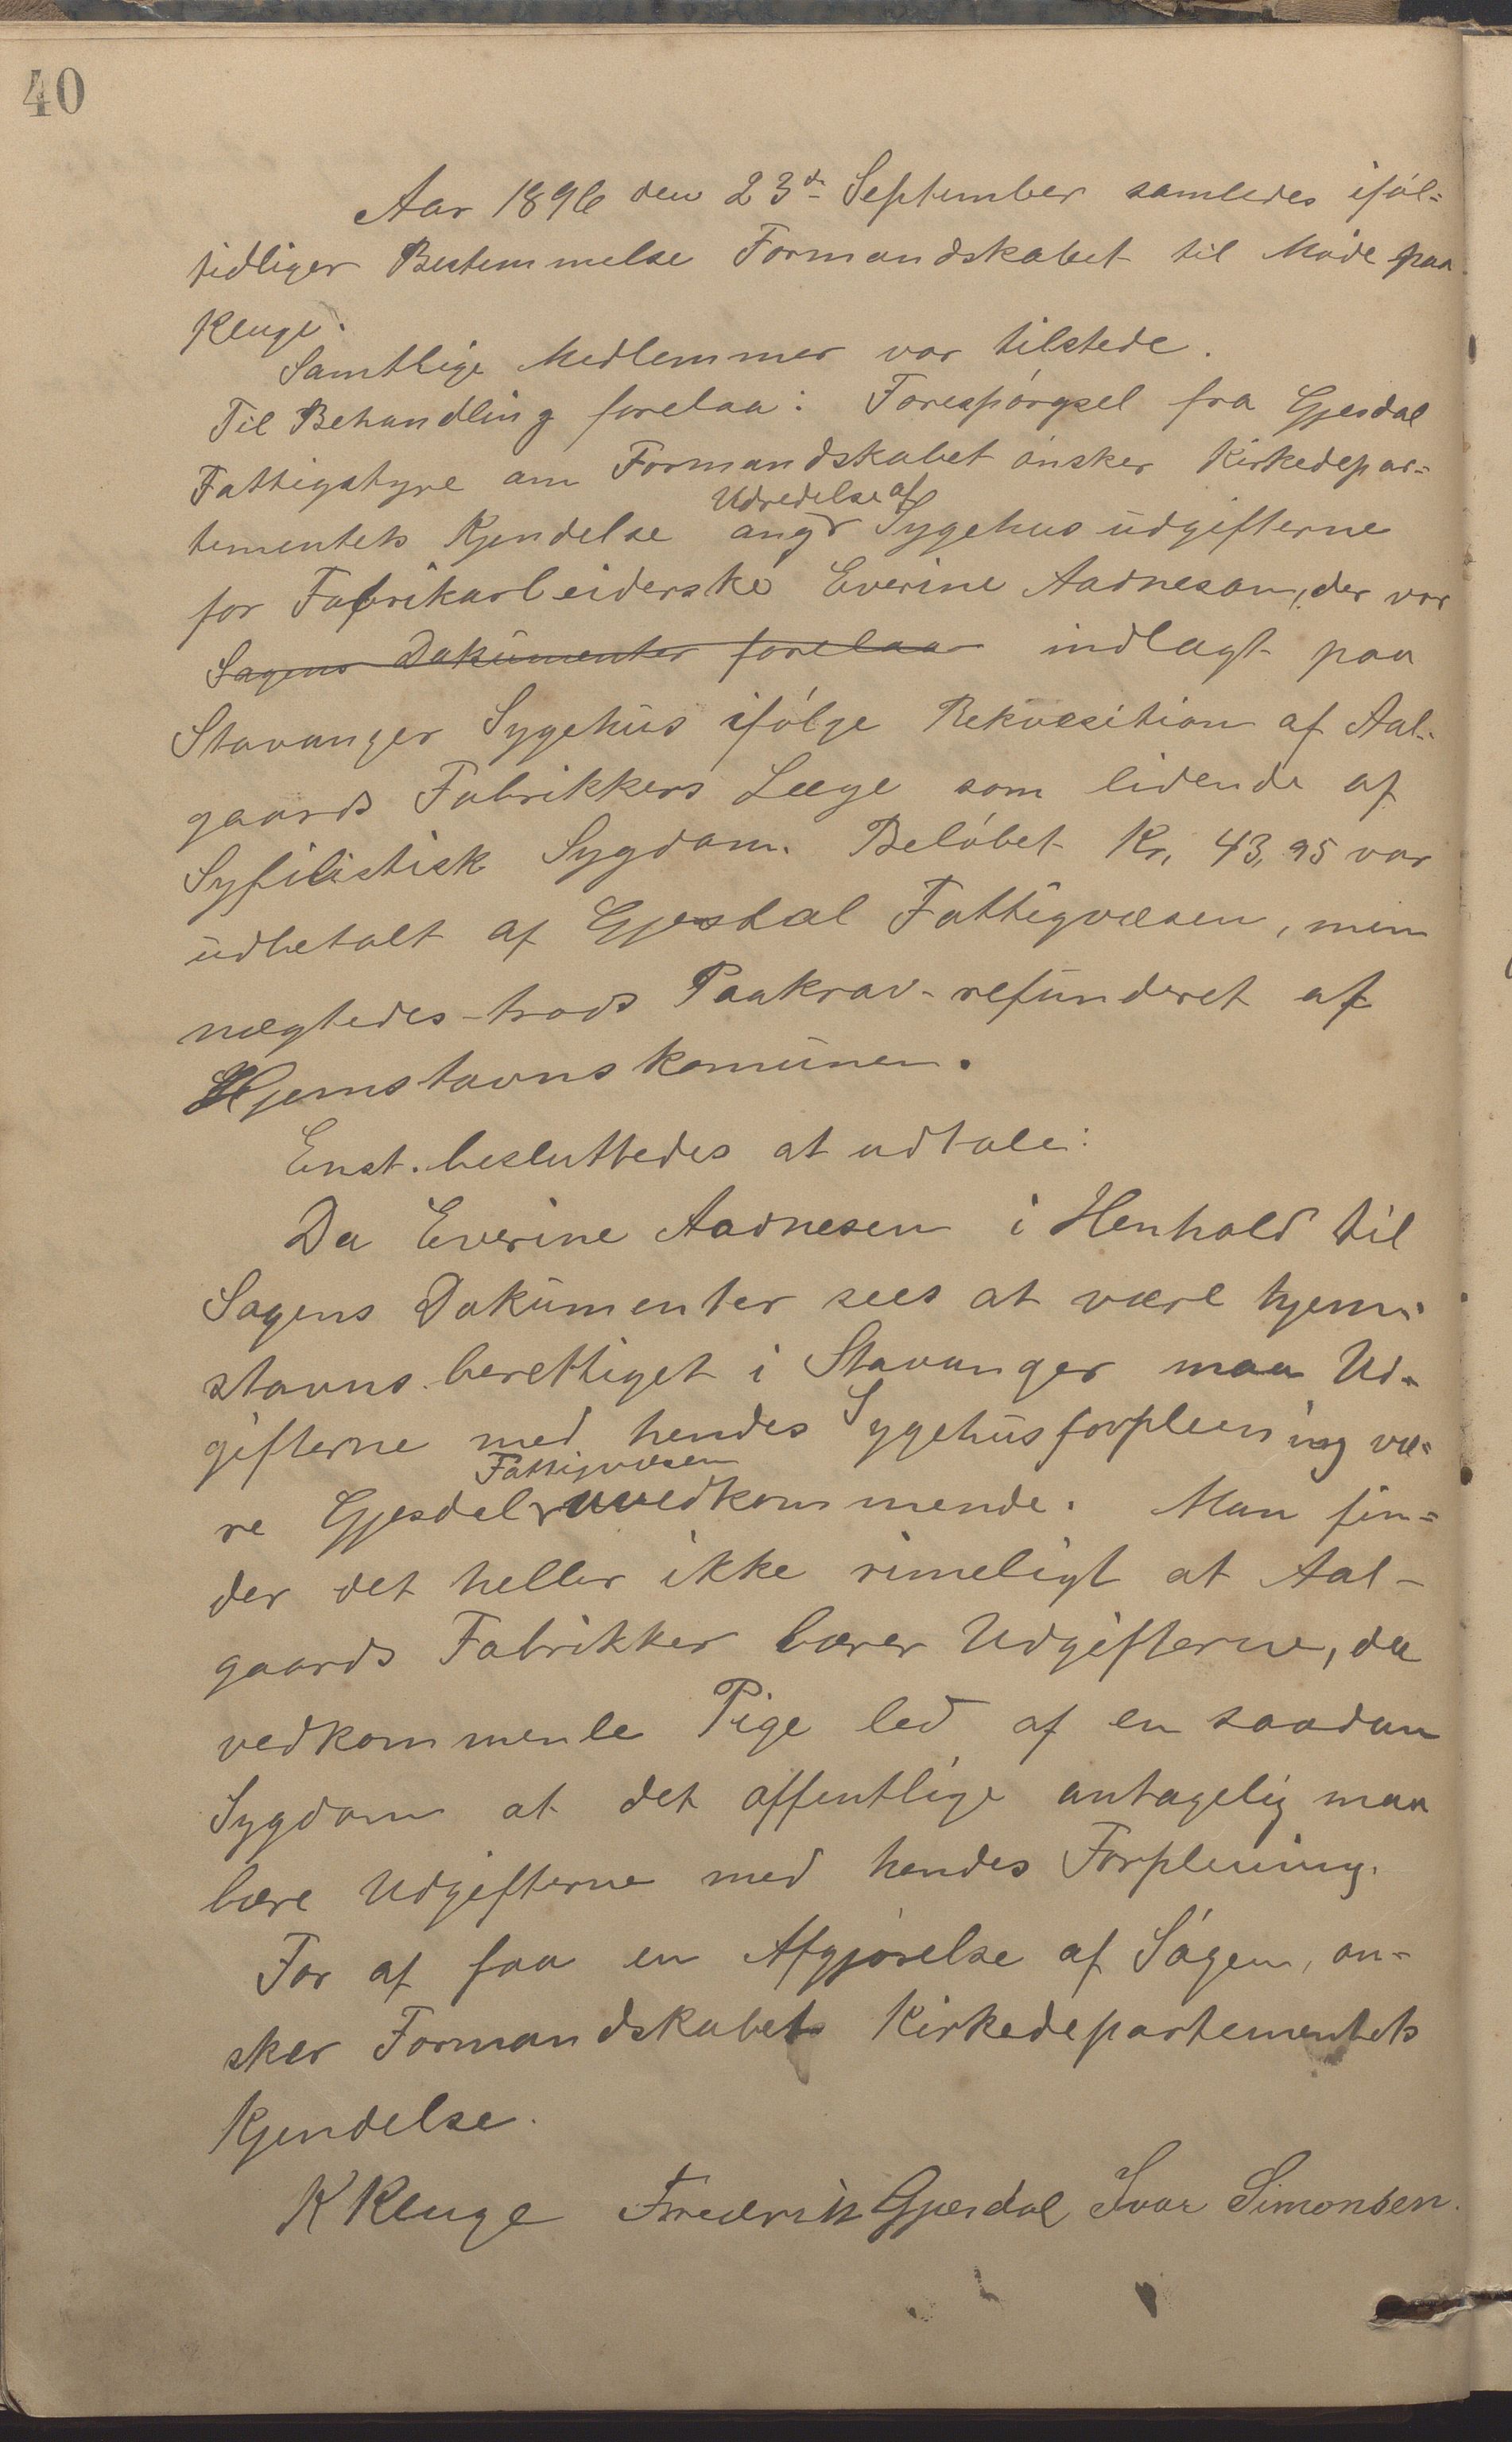 40
Aar 1896 den 23de September samledes iføl=
tidliger Bestemmelse Formandskabet til Møde paa
Kluge.
Samtlige Medlemmer var tilstede.
Til Behandling forelaa: Forespørgsel fra Gjesdal
Fattigstyre om Formandskabet ønsker Kirkedepar=
Udredelse af
tementets Kjendelse angr Sygehusudgifterne
for Fabrikarbeiderske Everine Aadnesen, der var
Sagens Dokumenter forelaa indlagt paa
Stavanger Sygehus ifølge Rekvesition af Aal-
gaards Fabrikkers Læge som lidende af
Syfilistisk Sygdom. Beløbet Kr. 43,95 var
udbetalt af Gjesdal Fattigvæsen, men
nægtedes-trods Paakrav-refunderet af
Hjemstavnskomunen.
Enst. besluttedes at udtale:
Da Everine Aadnesen i Henhold til
Sagens Dokumenter sees at være hjem-
stavnsberettiget i Stavanger maa Ud-
gifterne med hendes Sygehusforpleining væ=
Fattigvæsen
re Gjesdal uvedkommende. Man fin=
der det heller ikke rimeligt at Aal-
gaards Fabrikker bærer Udgifterne, da
vedkommende Pige led af en saadan
Sygdom at det offentlige antagelig maa
bære Udgifterne med hendes Forpleining.
For at faa en Afgjørelse af Sagen, øn-
sker Formandskabet Kirkedepartementets
Kjendelse.
K Kluge Fredrik Gjesdal Ivar Simonsen.